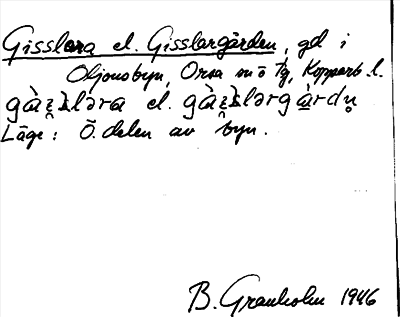 Gisslara el. Gisslargården, gd i
Oljonsbyn, Orsa sn o tg, Kopparb. l.
el.
Läge: Ö. delen av byn.
B. Granholm 1946